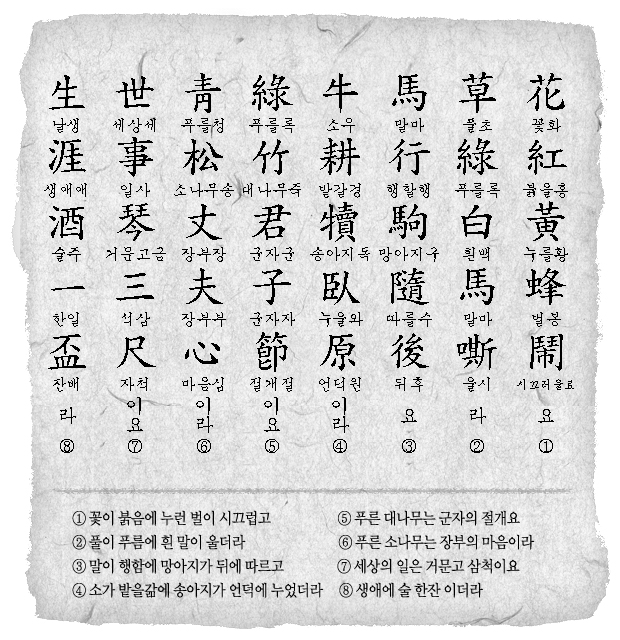 花 꽃화 紅 붉을홍 黃 누를황 蜂 벌봉 鬧 시끄러울료 요 ①
草 풀초 綠 푸를록 白 흰백 馬 말마 嘶 울시 라 ②
馬 말마 行 행할행 駒 망아지구 隨 따를수 後 뒤후 요 ③
牛 소우 耕 밭갈경 犢 송아지독 臥 누울와 原 언덕원 이라 ④
綠 푸를록 竹 대나무죽 君 군자군 子 군자자 節 절개절 이요 ⑤
靑 푸를청 松 소나무송 丈 장부장 夫 장부부 心 마음심 이라 ⑥
世 세상세 事 일사 琴 거문고금 三 석삼 尺 자척 이요 ⑦
生 날생 涯 생애애 酒 술주 一 한일 盃 잔배 라 ⑧
① 꽃이 붉음에 누런 벌이 시끄럽고
② 풀이 푸름에 흰 말이 울더라
③ 말이 행함에 망아지가 뒤에 따르고
④ 소가 밭을갊에 송아지가 언덕에 누었더라
⑤ 푸른 대나무는 군자의 절개요
⑥ 푸른 소나무는 장부의 마음이라
⑦ 세상의 일은 거문고 삼척이요
⑧ 생애에 술 한잔 이더라